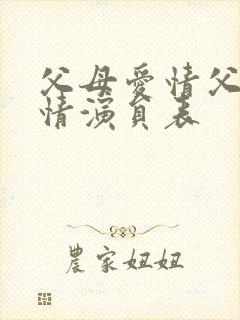 父母愛情父
情演員表
農家妞妞